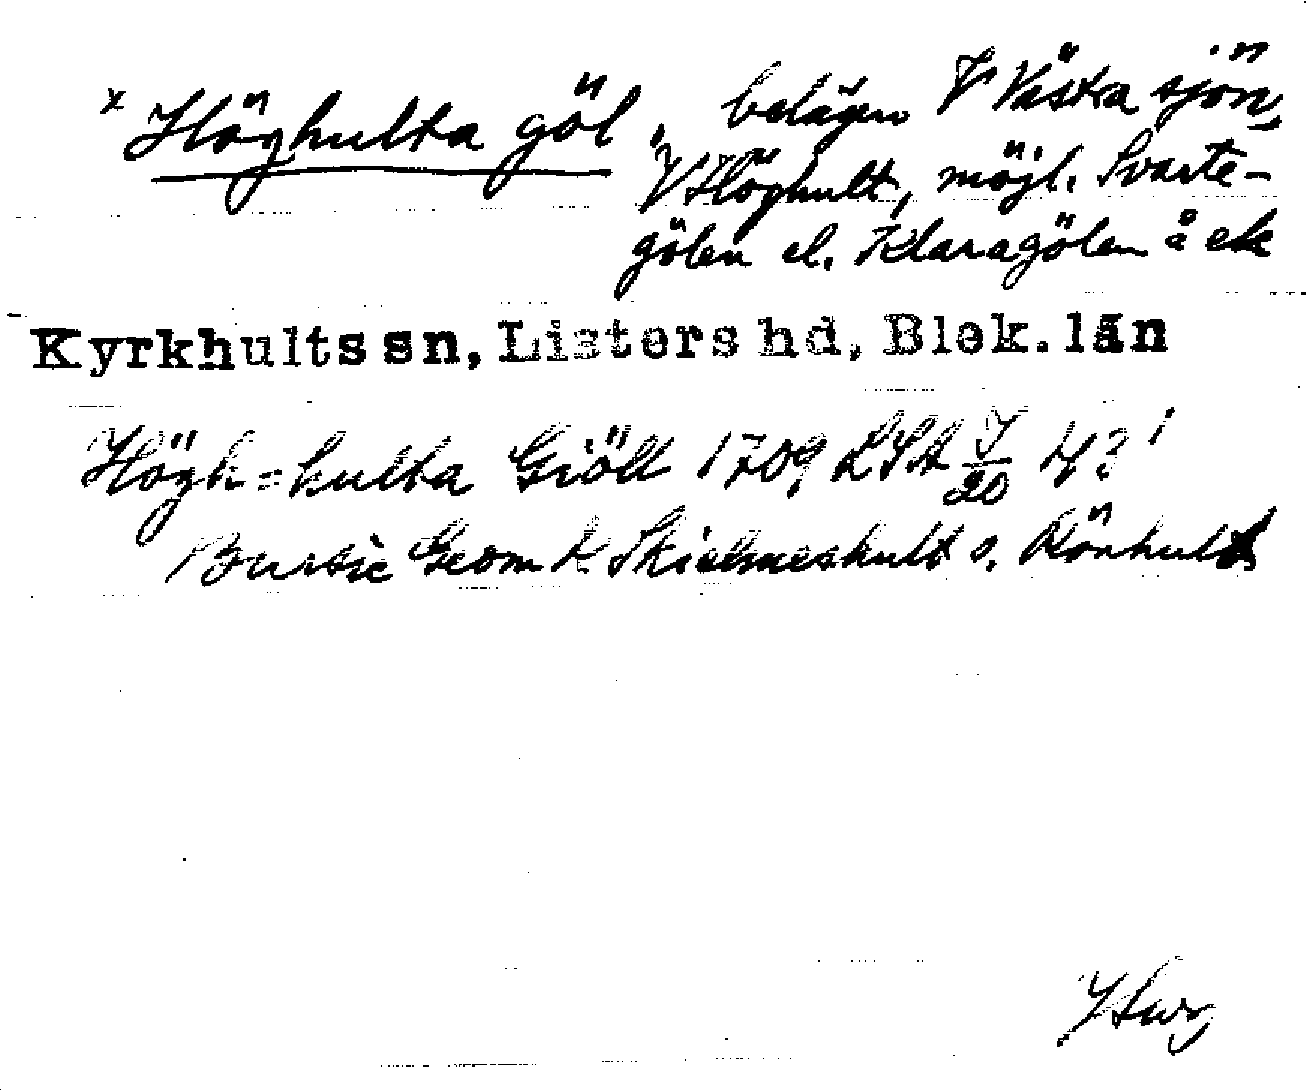 x Höghulta göl, belägen V Västra sjön,
V Höghult, möjl. Svarte-
gölen el. Klaragölen å ek
Kyrkhults sn, Listers hd, Blek. län
Högh=hulta Giöll 1709 LSA I/20 4?
Bursie Geom K Skielmeshult o. Rönhult